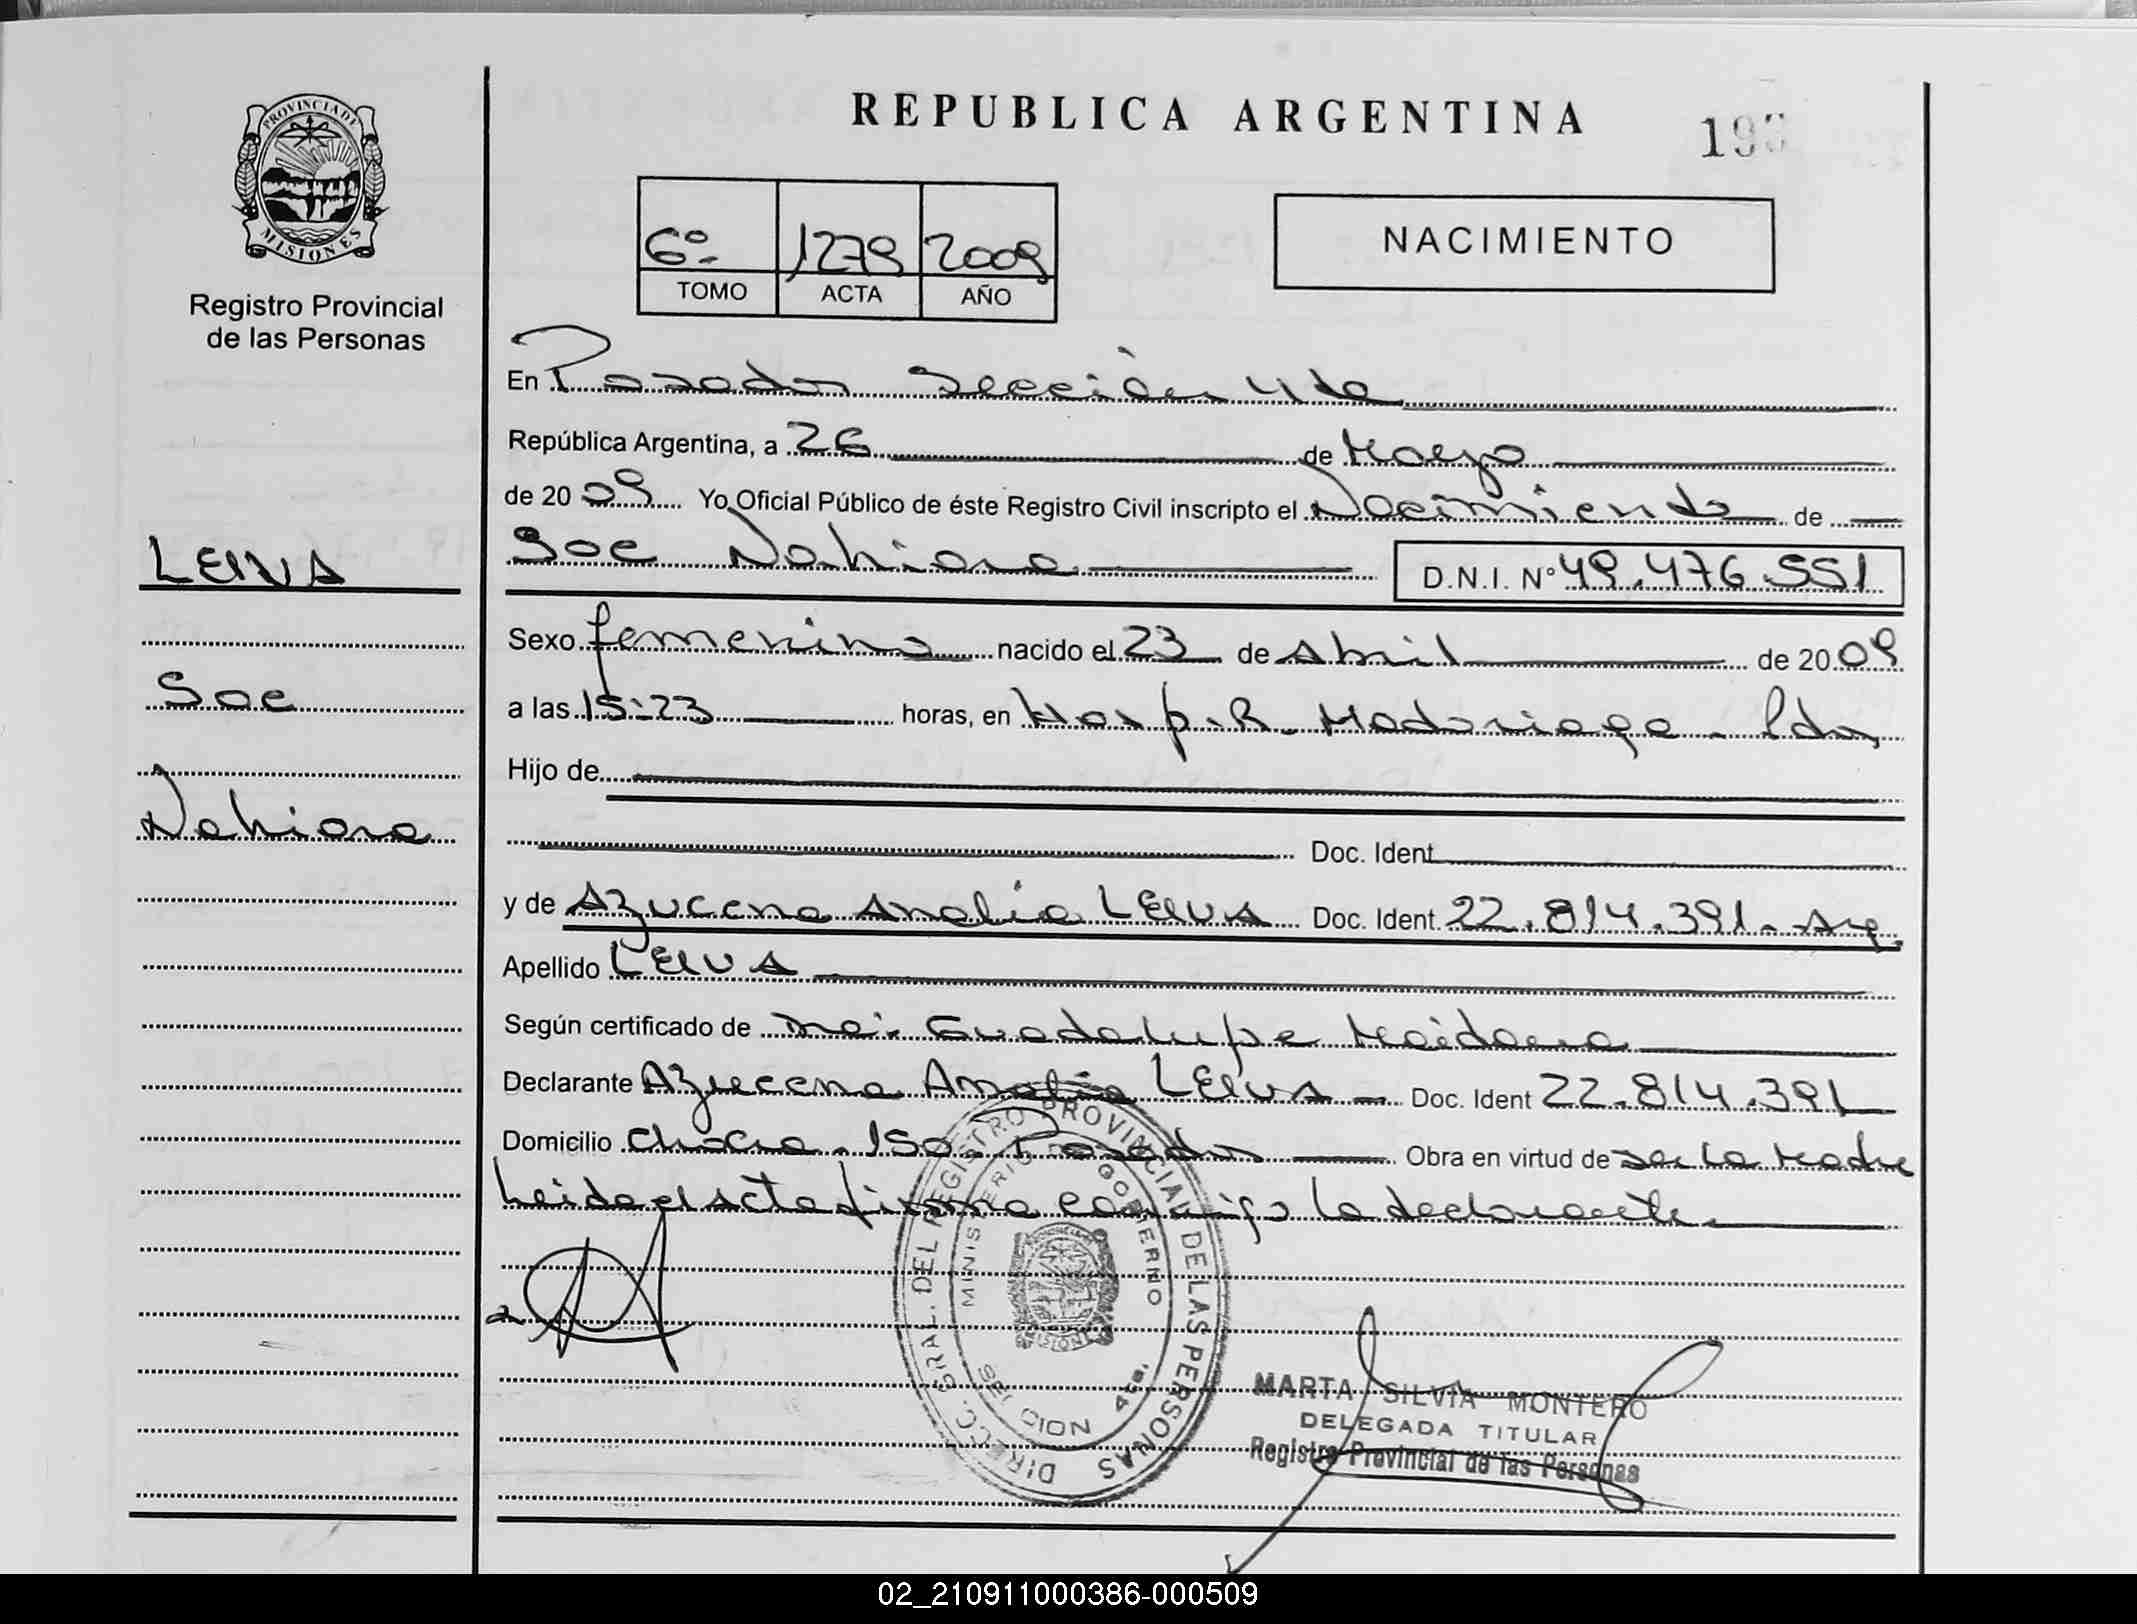 PROVINCIA DE
MISIONES
Registro Provincial
de las Personas
LEIVA
Soe
Nahiara
REPUBLICA ARGENTINA
193
6º 1279 2009
TOMO ACTA AÑO
NACIMIENTO
En Posadas Sección 4ta
República Argentina, a 26 de Mayo
de 20 09 Yo Oficial Público de éste Registro Civil inscripto el Nacimiento de
Soe Nahiara D.N.I. Nº 49.476.551
Sexo femenino nacido el 23 de Abril de 20 09
a las 15:23 horas, en Hosp. R. Madariaga - Pdas
Hijo de
Doc. Ident
y de Azucena Analia LEIVA Doc. Ident. 22.814.391 - Arg.
Apellido LEIVA
Según certificado de Guadalupe Maidana
Declarante Azucena Analia LEIVA - Doc. Ident 22.814.391
Domicilio Chacra. 150. Posadas Obra en virtud de ser la Madre
Leida el Acta firma conmigo la declarante
DIRECC. GRAL. DEL REGISTRO PROVINCIAL DE LAS PERSONAS
MINISTERIO DE GOBIERNO
MISIONES
4ta.
MARTA SILVIA MONTERO
DELEGADA TITULAR
Registro Provincial de las Personas
02_210911000386-000509